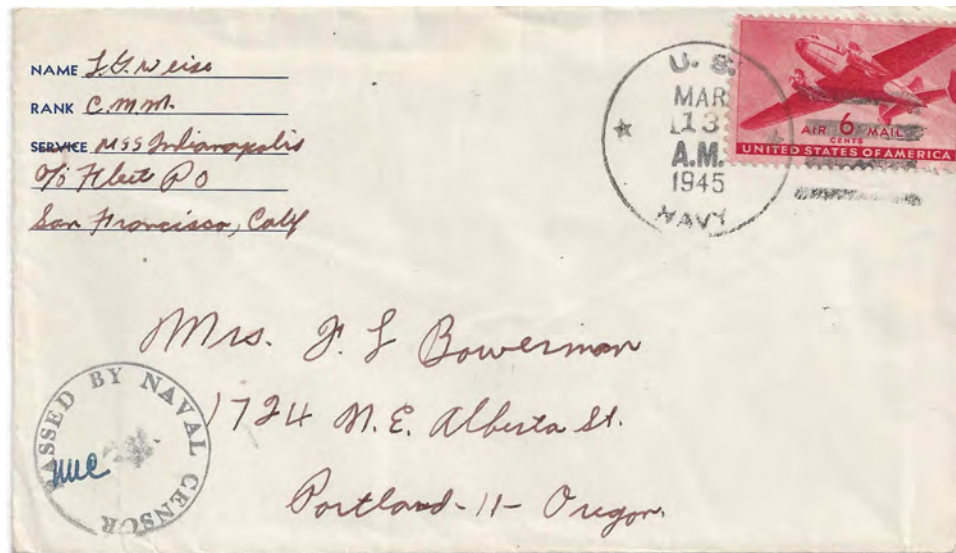 NAME L.G. Weise
RANK C.M.M.
SERVICE USS Indianapolis
c/o Fleet P O
San Francisco, Calif
U. S.
MAR
13
A.M.
1945
NAVY
AIR 6 MAIL
CENTS
UNITED STATES OF AMERICA
Mrs. F. L Bowerman
1724 N.E. Alberta St.
Portland-11-Oregon.
PASSED BY NAVAL CENSOR